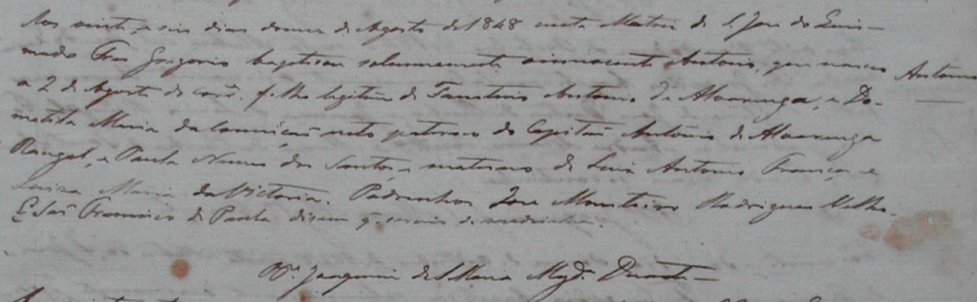 Aos vinte, e seis dias do mez de Agosto de 1848 nesta Matriz de S. Joze do Quei-
mado Frei Gregorio baptisou solemnemente o innocente Antonio, que nasceo Antonio
a 2 de Agosto do corr.e filho legitimo de Faustino Antonio de Alvarenga, e Do-
metilla Maria da Conceição neto paterno do Capitão Antonio de Alvarenga
Rangel, e Paula Nunes dos Santos, materno de Luis Antonio França e
Luiza Maria da Victoria. Padrinhos Joze Monteiro Rodrigues Velho,
E São Francisco de Paula disem q. servio de madrinha.
Joaquim de Duarte